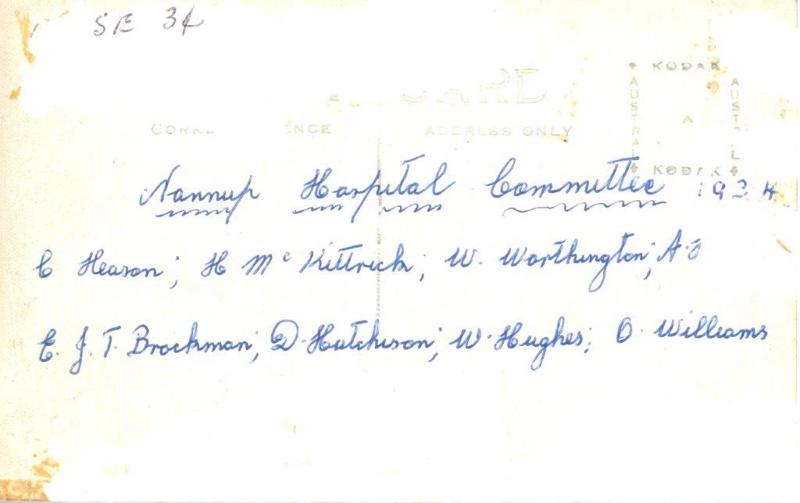 SE 34
CARD
ADDRESS ONLY
KODAK
AUSTRAL
A
AUST L
KODAK
Nannup Hospital Committee 1934
C Heason; H McKittrick; W. Worthington; A.J
E. J. T. Brockman; D. Hutchison; W. Hughes; O. Williams